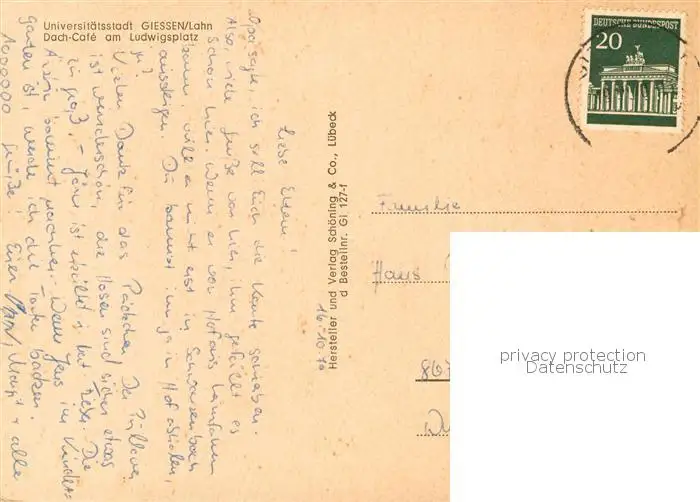 Universitätsstadt GIESSEN/Lahn
Dach-Café am Ludwigsplatz
DEUTSCHE BUNDESPOST
20
Hersteller und Verlag Schöning & Co., Lübeck
Bestellnr. Gi 127-f
16.10.70
Liebe Eltern!
Opa sagte, ich soll Euch die Karte schreiben.
Also, viele Grüße von hier, ihm gefällt es
schon hier. Wenn er von Hof aus heimfahren
kann, will er nicht erst in Schwarzenbach
aussteigen. Du kannst ihn ja in Hof abholen,
ja?
Vielen Dank für das Päckchen. Der Pullover
ist wunderschön, die Hosen sind sicher etwas
zu groß. – Jens ist erkältet & hat Fieber. Die
Ärztin kommt nachher. Wenn Jens im Kinder=
garten ist, werde ich die Torte backen.
1000000 Grüße! Eure
& alle
Familie
Hans
867
privacy protection
Datenschutz